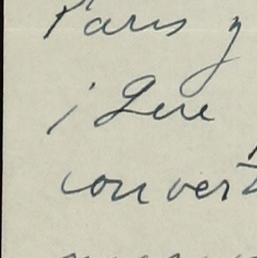 Paris y
¡Que
convert